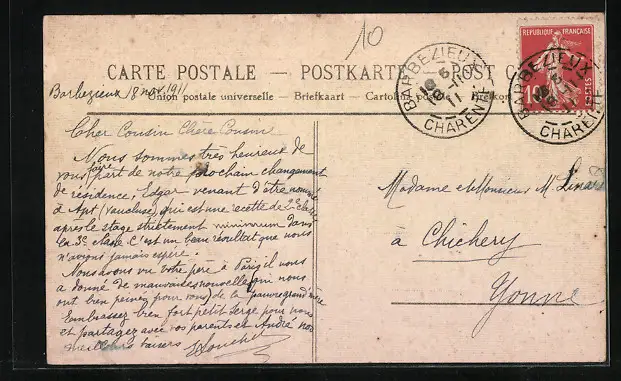 10
CARTE POSTALE — POSTKARTE — POST C
Union postale universelle — Briefkaart — Cartolina postale
Barbezieux 18 nov 1911
BARBEZIEUX
CHARENTE
REPUBLIQUE FRANÇAISE
POSTES
10
BARBEZIEUX
CHARENTE
Cher Cousin Chère Cousine
Nous sommes très heureux de
vous faire part de notre prochain changement
de résidence, Edgar venant d'être nommé
à Apt (Vaucluse) qui est une recette de 2e classe
après le stage strictement minimum dans
la 3e classe C'est un beau résultat que nous
n'avions jamais espéré.
Nous avons vu votre père à Paris il nous
a donné de mauvaises nouvelles qui nous
ont bien peinés pour vous, de la pauvre grand'mère
Embrassez bien fort petit Serge pour nous
et partagez avec vos parents et André nos
meilleurs baisers
Madame et Monsieur M.
à Chichery
Yonne